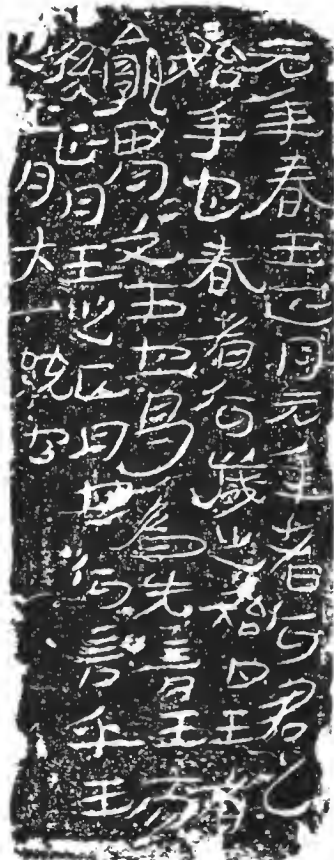 元年春王正月元年者何君之
始年也春者何歲之始也王者
孰胃=文王也曷為先言王而
後正月王之正月也何言乎王
正月大一統也